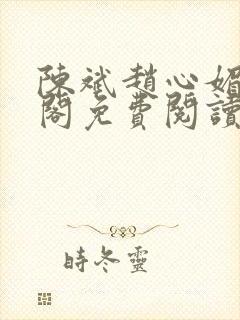 陳斌趙心媚
閣免費閱讀
時冬靈